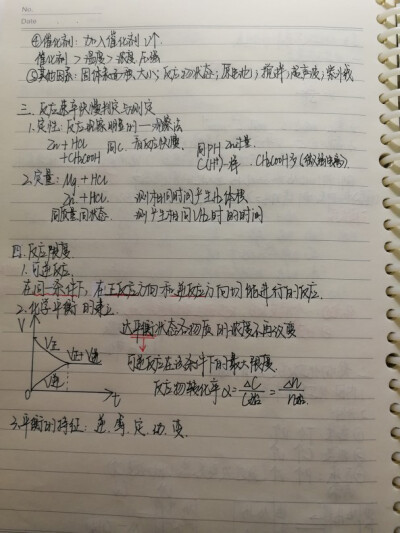 No.
Date
④催化剂：加入催化剂 V↑.
催化剂 > 温度 > 浓度 压强
⑤其他因素：固体表面积大小；反应物状态；原电池；搅拌；超声波；紫外线
三. 反应速率快慢判定与测定
1. 定性：反应现象明显的——观察法
Zn + HCl 同C. 看反应快慢. 同PH Zn足量.
+CH₃COOH C(H⁺)一样. CH₃COOH多(弱电解质)
2. 定量：Mg + HCl
Zn + HCl. 测相同时间产生H₂体积
同质量同状态. 测产生相同VH₂时的时间
四. 反应限度
1. 可逆反应.
在同一条件下，在正反应方向和逆反应方向均能进行的反应.
2. 化学平衡的建立.
V
达平衡状态各物质的浓度不再改变
V正
V正=V逆
可逆反应在该条件下的最大限度.
V逆
反应物转化率α=ΔC/C始=Δn/n始
t
3. 平衡的特征：逆. 等. 定. 动. 变.